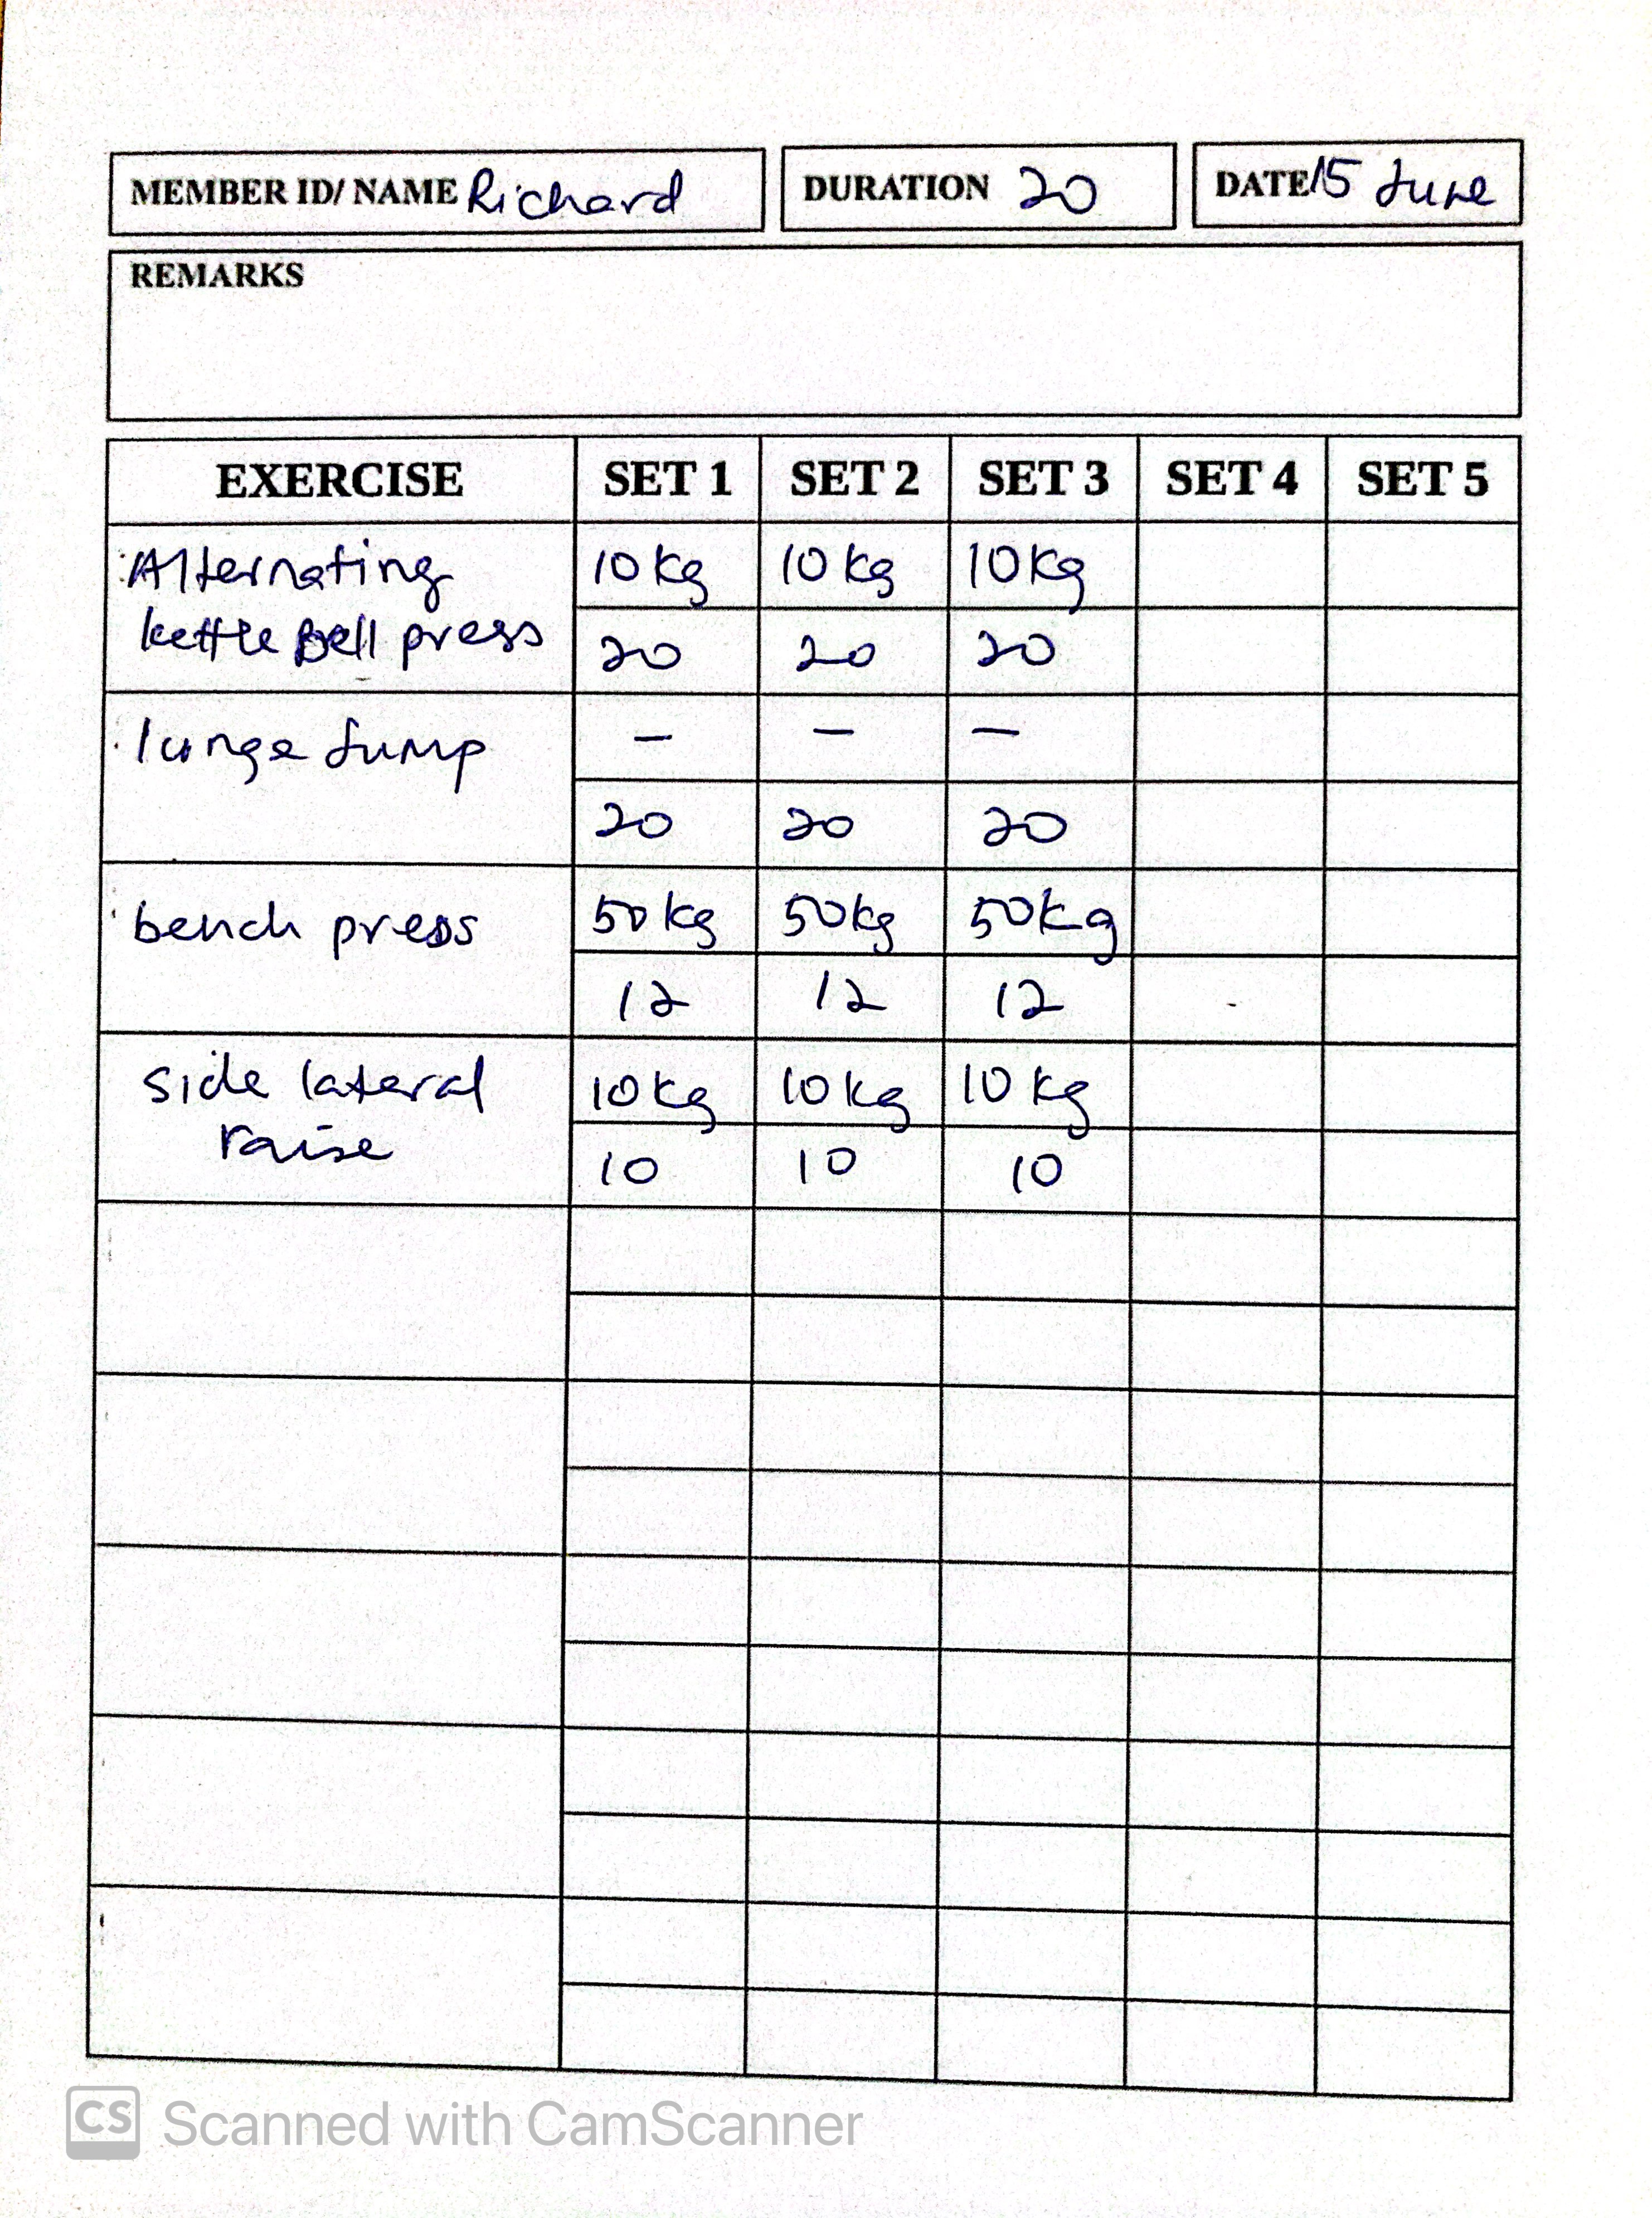 MEMBER ID/ NAME Richard DURATION 20 DATE 15 June
REMARKS
EXERCISE SET 1 SET 2 SET 3 SET 4 SET 5
Alternating 10 kg 10 kg 10 kg
kettle Bell press 20 20 20
lunge Jump - - -
20 20 20
bench press 50 kg 50 kg 50 kg
12 12 12
side lateral 10 kg 10 kg 10 kg
raise 10 10 10
CS Scanned with CamScanner